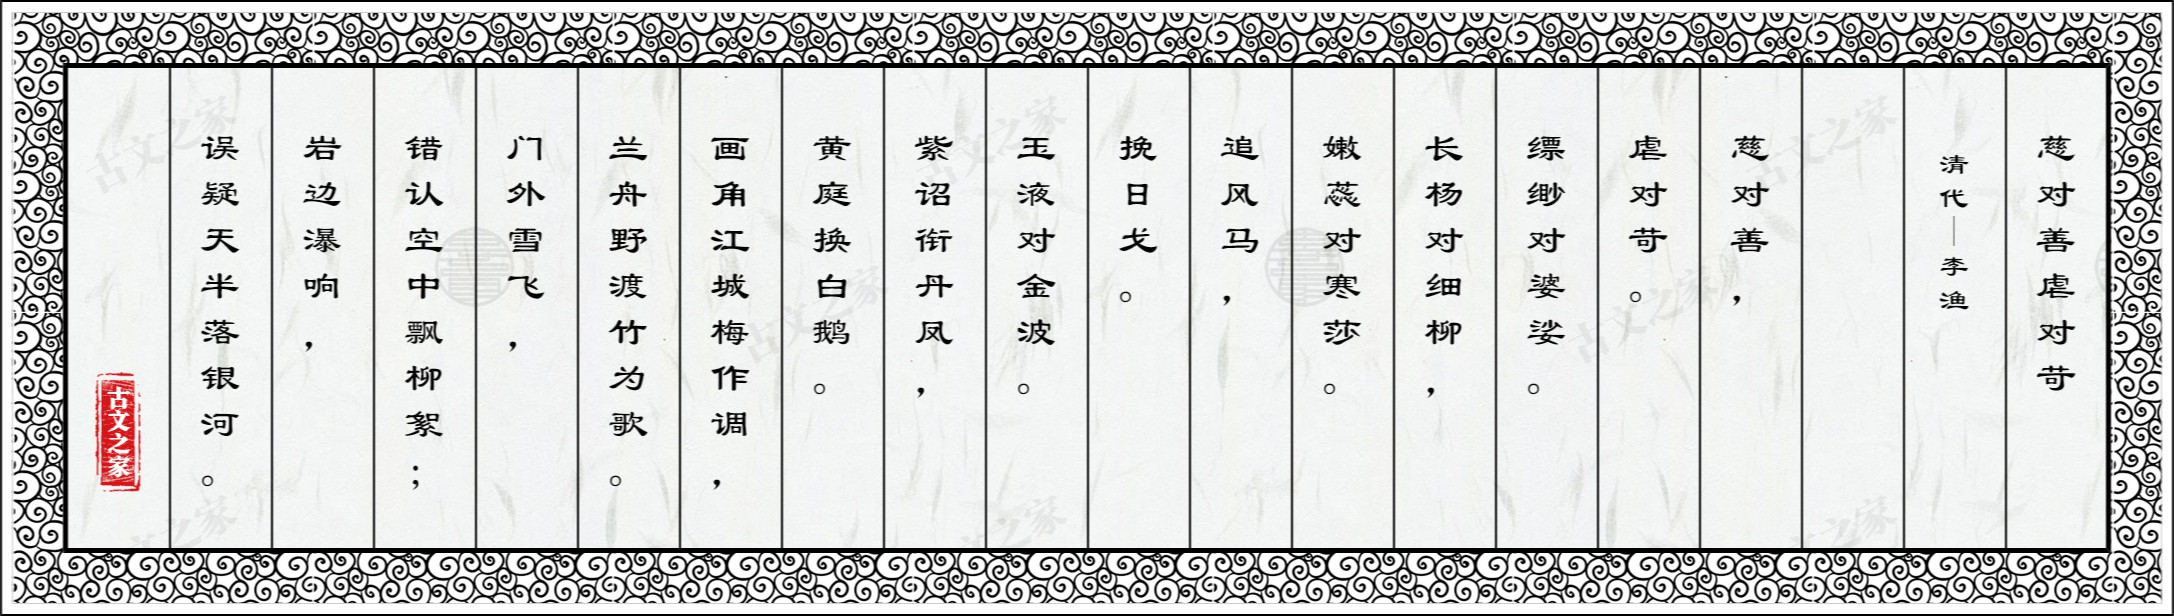 慈对善虐对苛
清代—李渔
慈对善，
虐对苛。
缥缈对婆娑。
长杨对细柳，
嫩蕊对寒莎。
追风马，
挽日戈。
玉液对金波。
紫诏衔丹凤，
黄庭换白鹅。
画角江城梅作调，
兰舟野渡竹为歌。
门外雪飞，
错认空中飘柳絮；
岩边瀑响，
误疑天半落银河。
古文之家